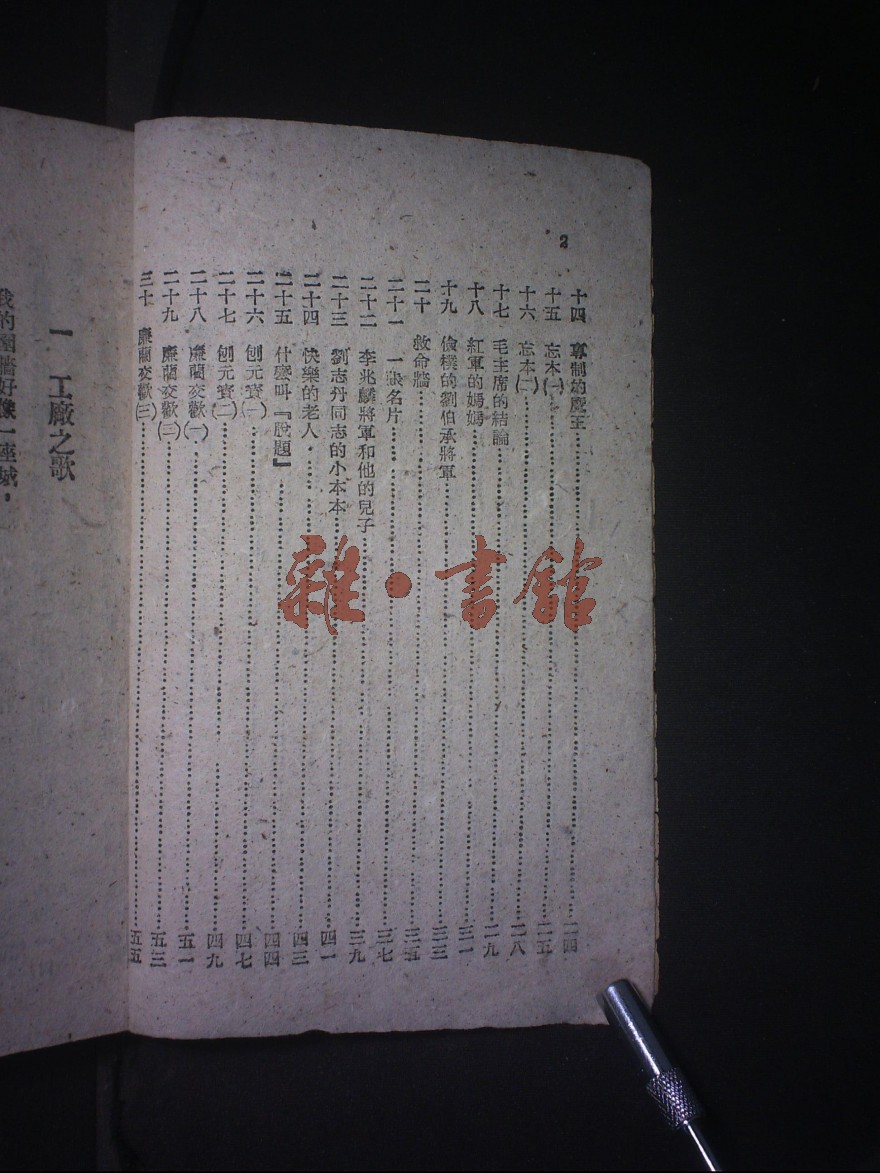 2
十四 專制的魔王 二四
十五 忘本(一) 二五
十六 忘本(二) 二八
十七 毛主席的結論 二九
十八 紅軍的媽媽 三一
十九 儉樸的劉伯承將軍 三三
二十 救命牆 三五
二十一 一張名片 三七
二十二 李兆麟將軍和他的兒子 三九
二十三 劉志丹同志的小本本 四一
二十四 快樂的老人 四三
二十五 什麼叫『脫題』 四四
二十六 刨元寶(一) 四七
二十七 刨元寶(二) 四九
二十八 廉藺交歡(一) 五一
二十九 廉藺交歡(二) 五三
三十 廉藺交歡(三) 五五
一 工廠之歌
我的圍牆好像一座城，
雜·書舘